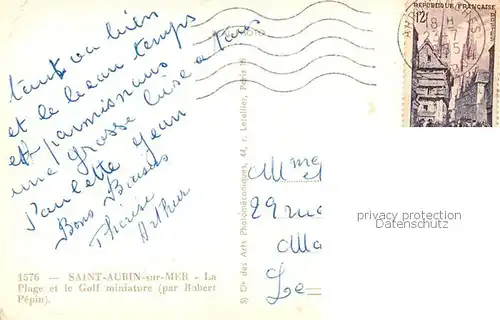 tout va bien
et le beau temps
est parmis nous
une grosse bise a tous
Paulette Jean
Bons Baisers
Thérèse
Arthur
1576 — SAINT-AUBIN-sur-MER - La
Plage et le Golf miniature (par Robert
Pépin).
des Arts Photomécaniques, 44, r. Letellier, Paris 15
REPUBLIQUE FRANÇAISE
12f
Mme
29 rue
Ma
Le
privacy protection
Datenschutz